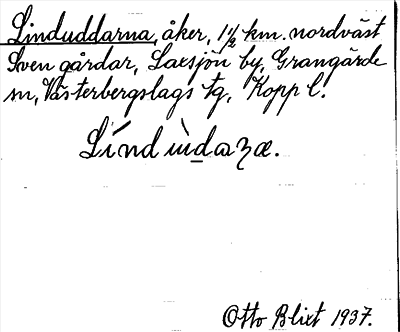 Linduddarna, åker, 1 1/2 km. nordväst
Sven gårdar, Laxsjön by, Grangärde
sn, Västerbergslags tg, Kopp l.
Líndùdaʒæ.
Otto Blixt 1937.